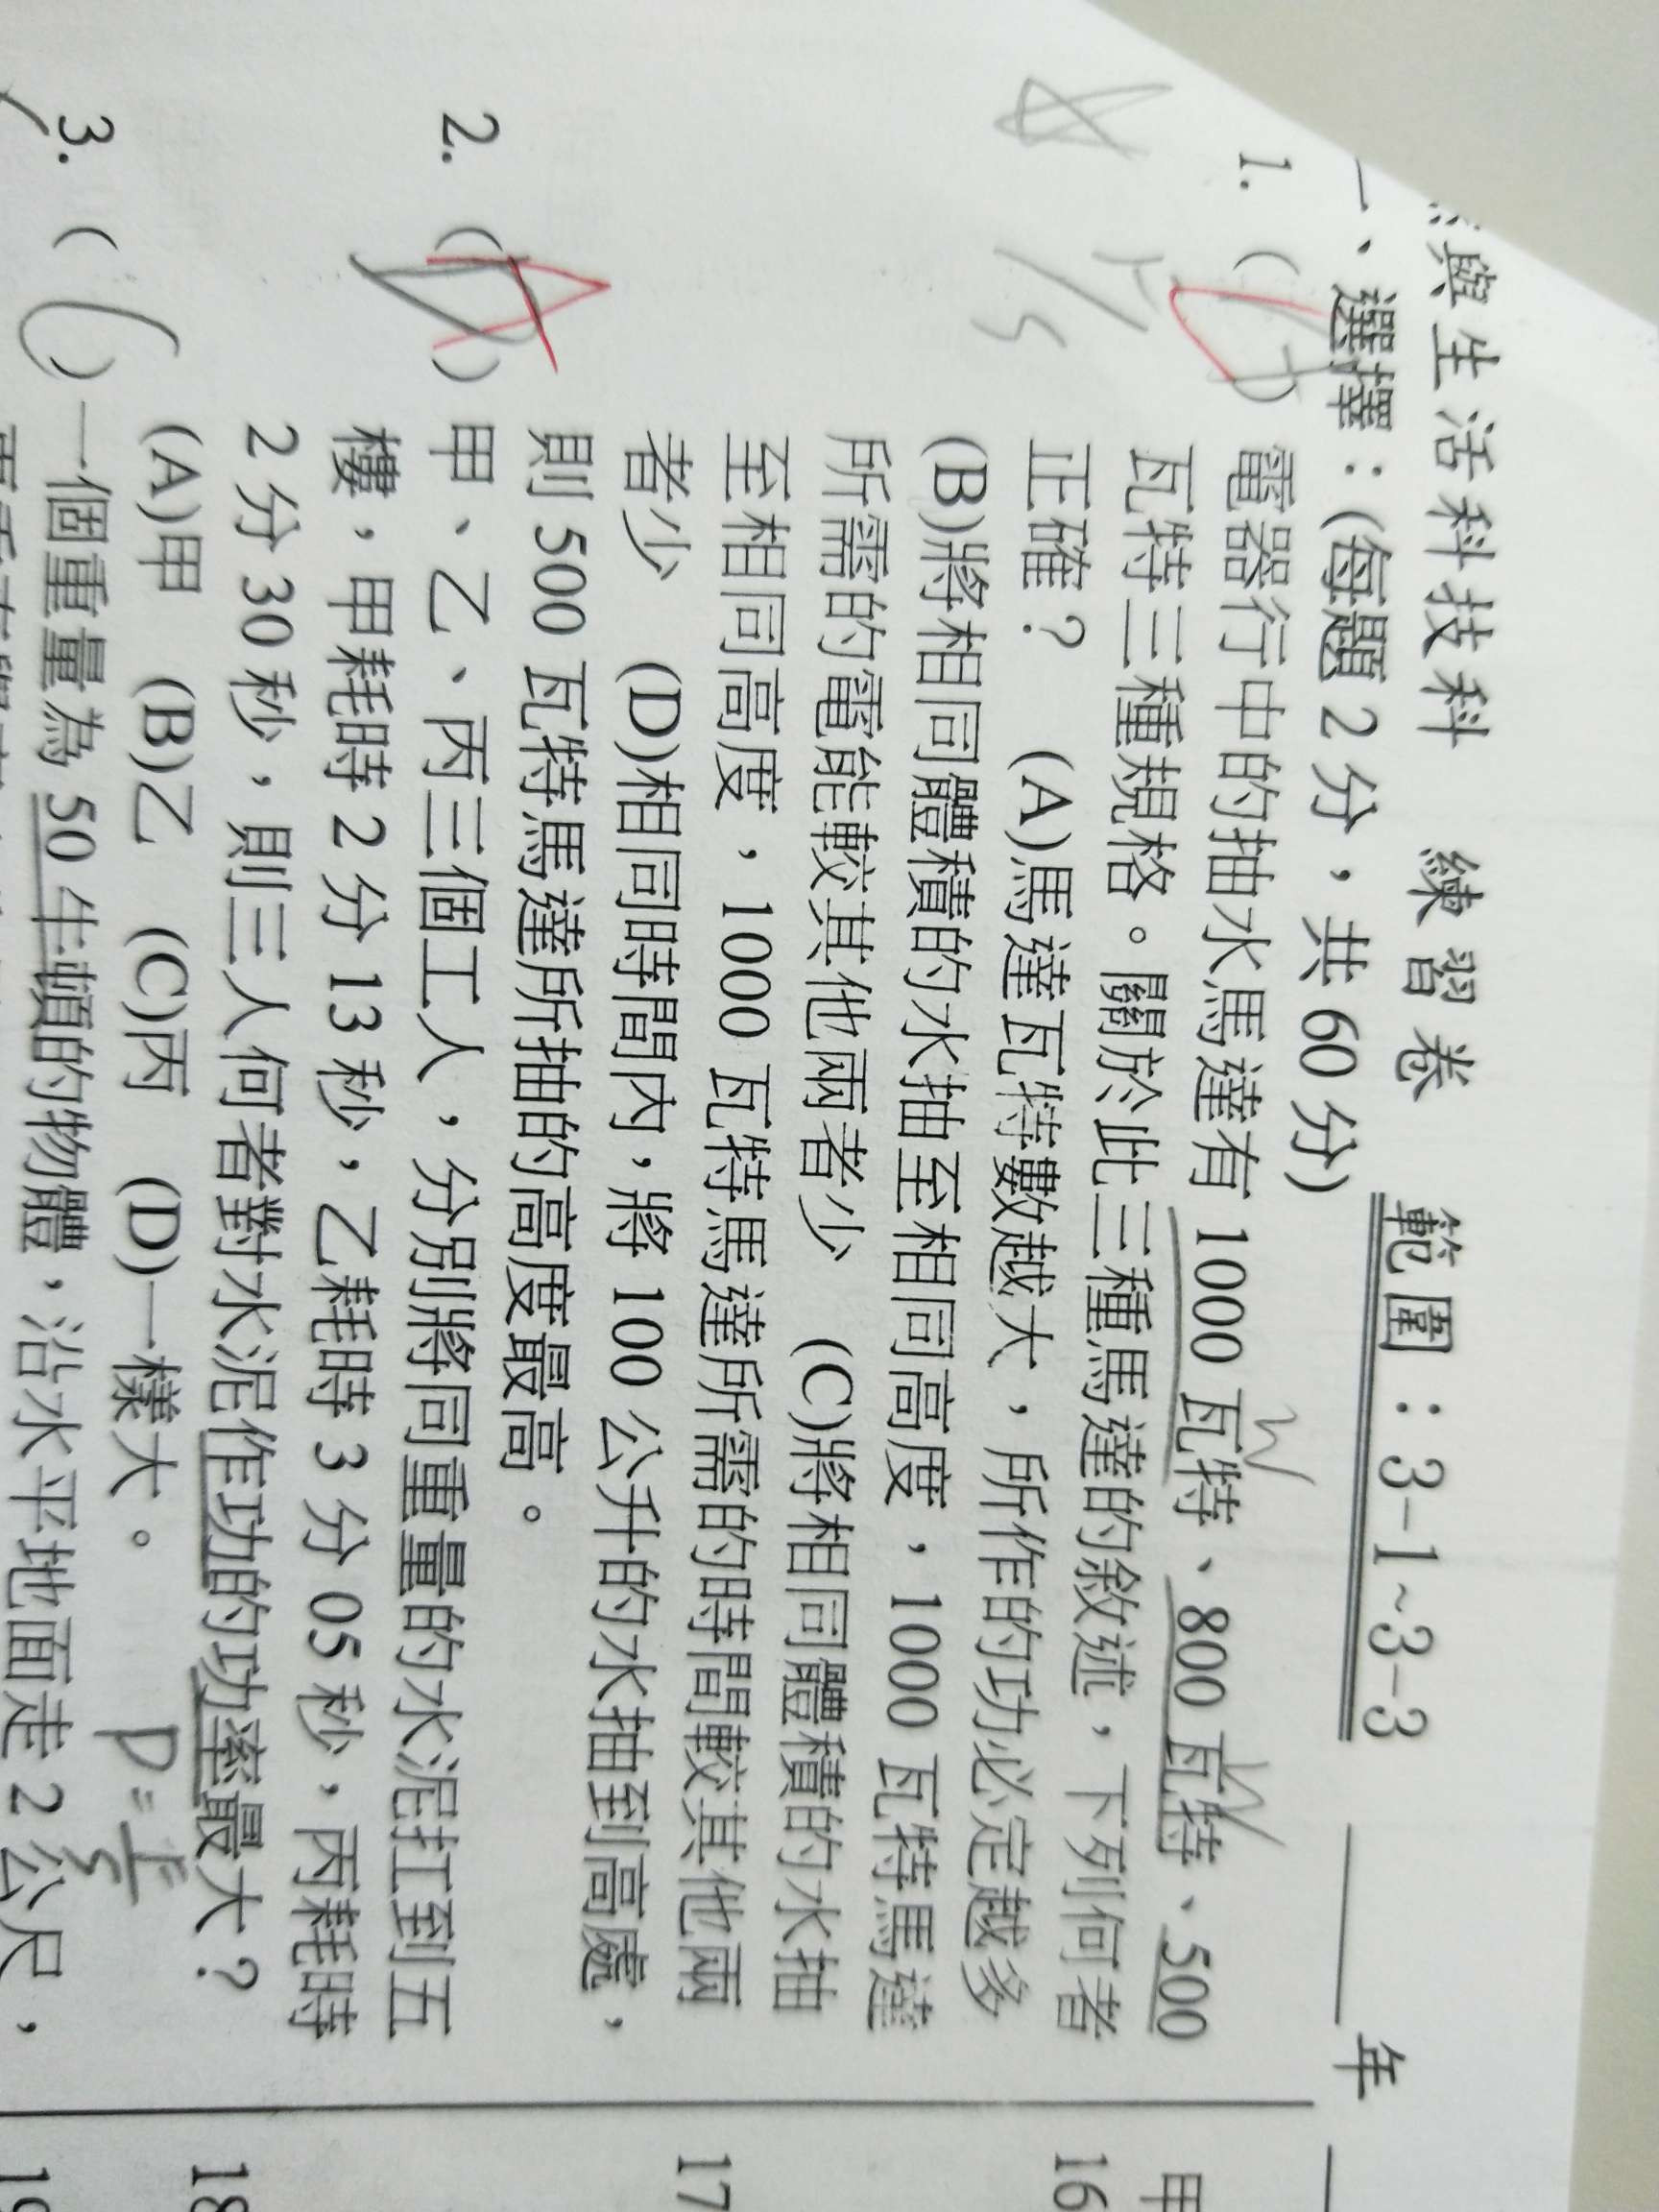 與生活科技科 練習卷 範圍：3-1~3-3 年
一、選擇：(每題 2 分，共 60 分)
1. ( ) 電器行中的抽水馬達有 1000 瓦特、800 瓦特、500
瓦特三種規格。關於此三種馬達的敘述，下列何者
正確？ (A)馬達瓦特數越大，所作的功必定越多
(B)將相同體積的水抽至相同高度，1000 瓦特馬達
所需的電能較其他兩者少 (C)將相同體積的水抽
至相同高度，1000 瓦特馬達所需的時間較其他兩
者少 (D)相同時間內，將 100 公升的水抽到高處，
則 500 瓦特馬達所抽的高度最高。
2. (A) 甲、乙、丙三個工人，分別將同重量的水泥扛到五
樓，甲耗時 2 分 13 秒，乙耗時 3 分 05 秒，丙耗時
2 分 30 秒，則三人何者對水泥作功的功率最大？
(A)甲 (B)乙 (C)丙 (D)一樣大。
3. ( ) 一個重量為 50 牛頓的物體，沿水平地面走 2 公尺，
W
W
甲
16
17
18